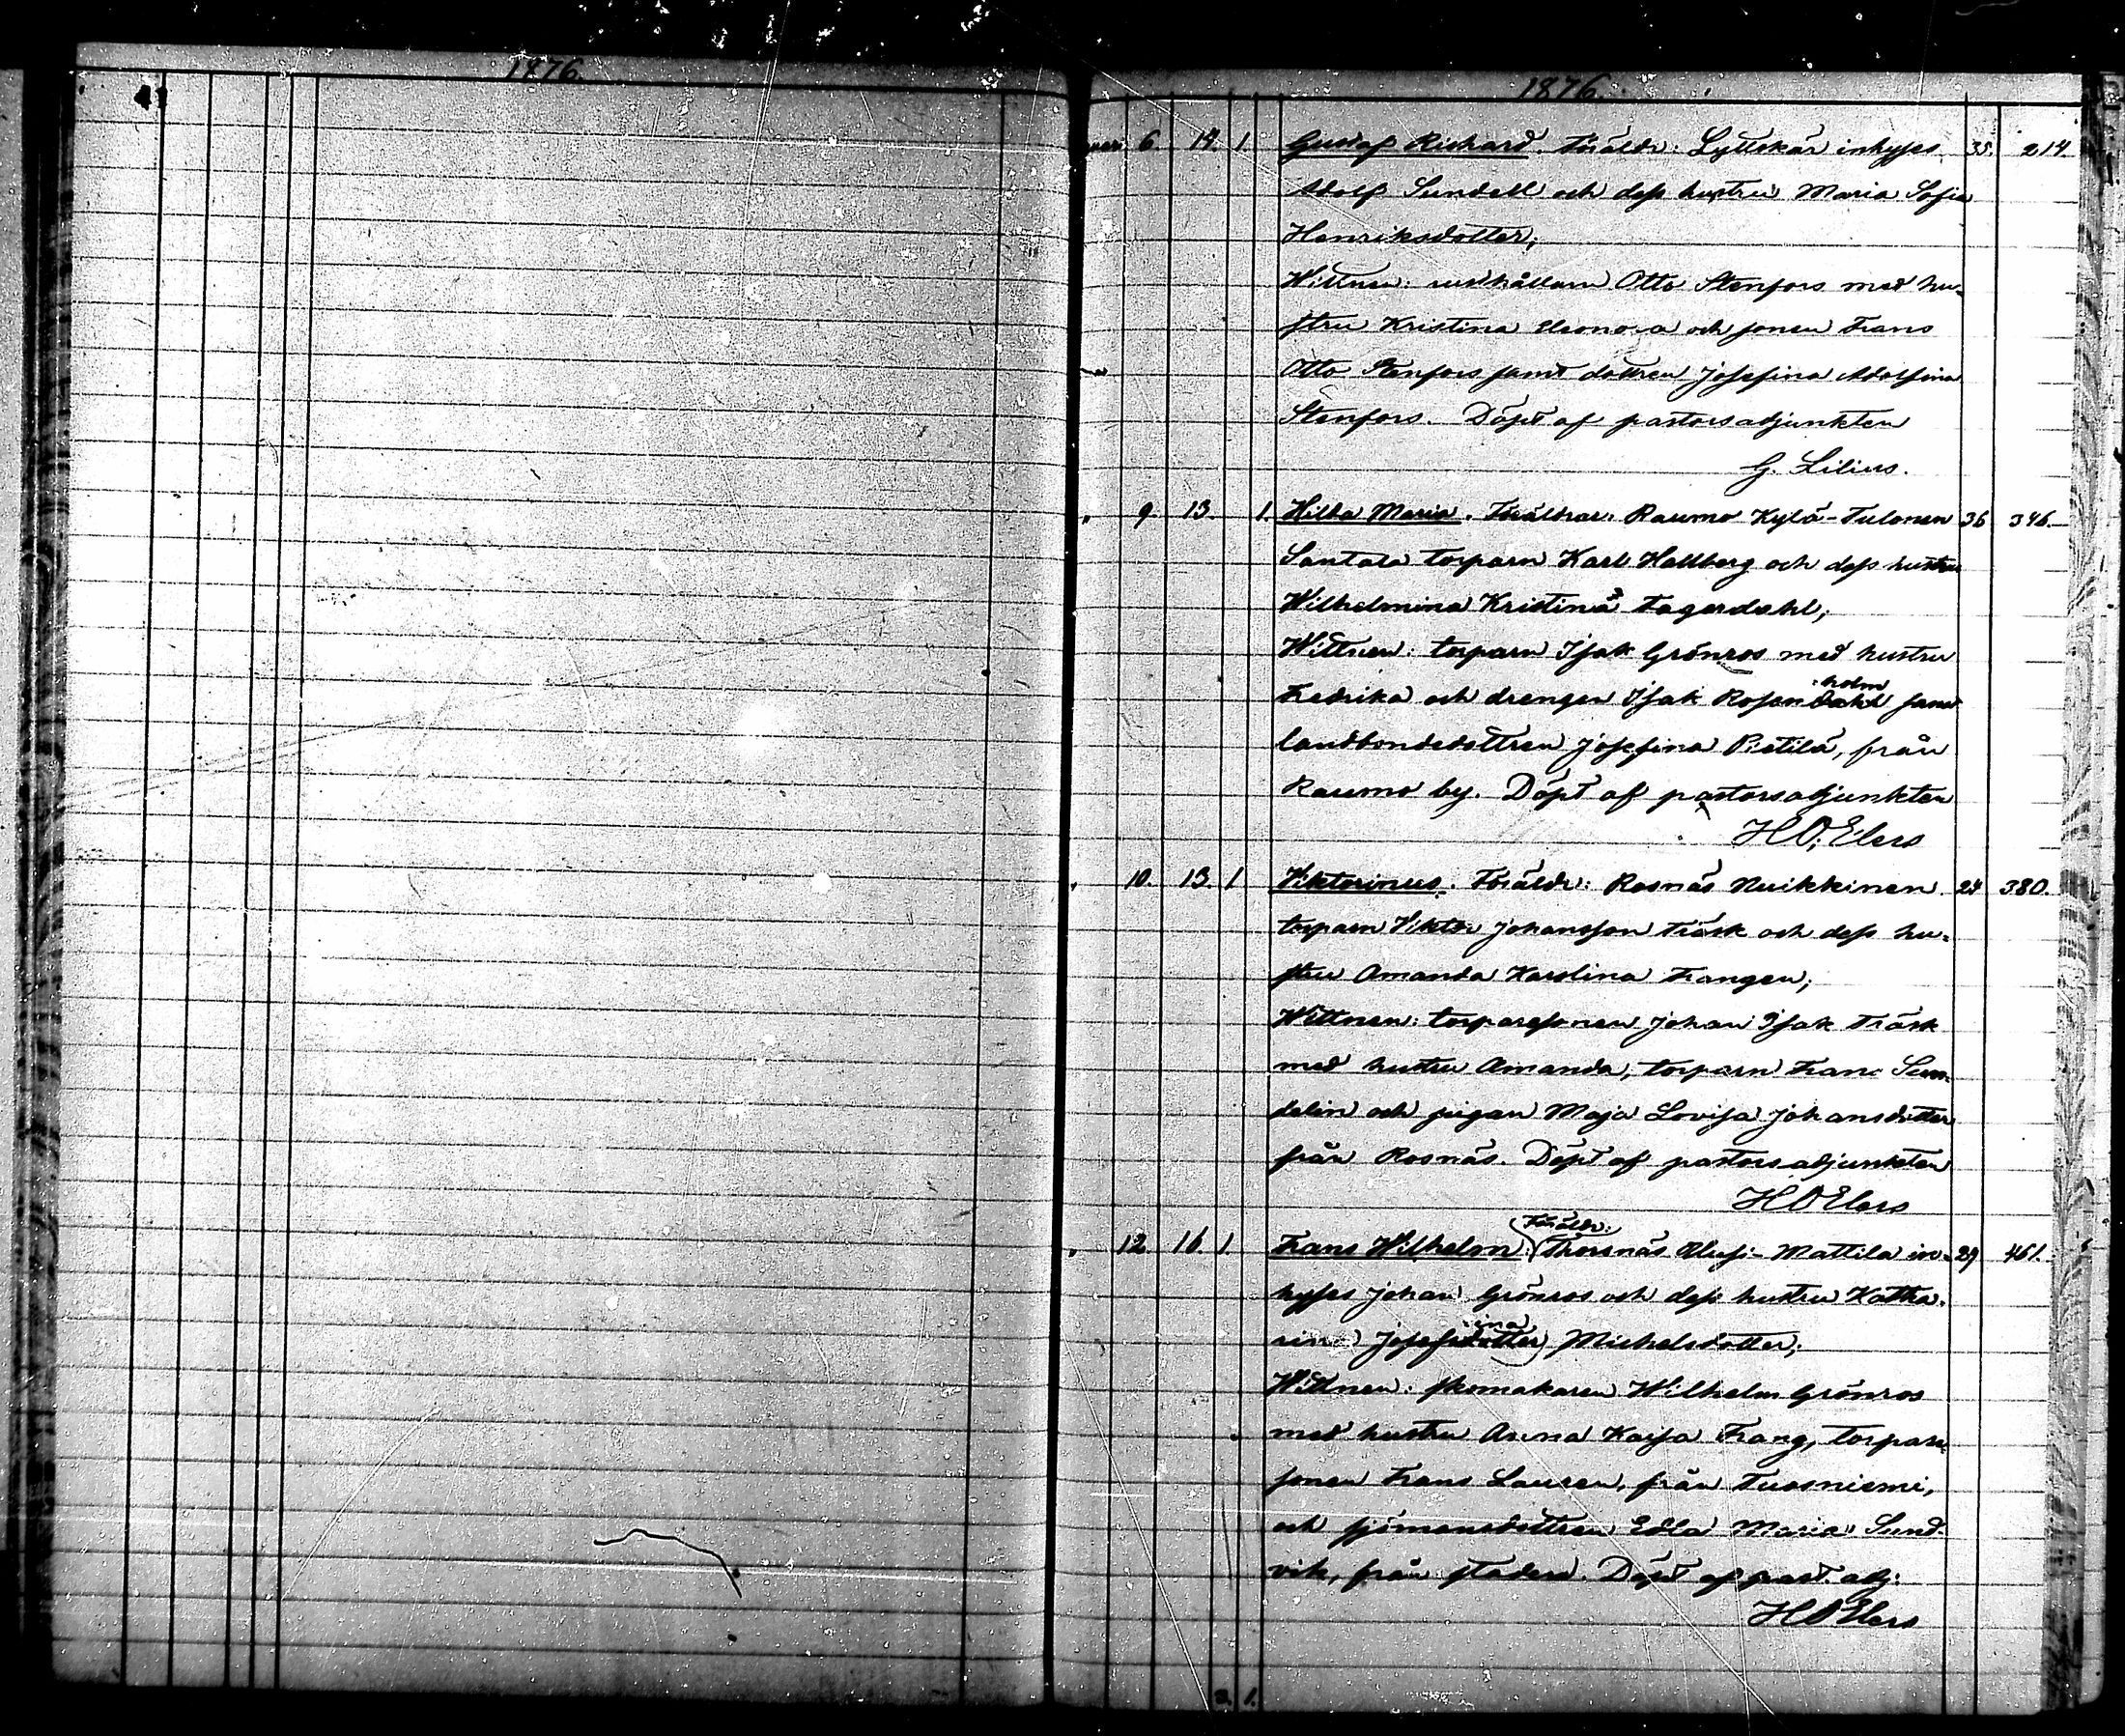 1876.
1876.
6 14. 1 Gustaf Richard. Föräldr: Lyttskär inhyses 35. 214.
Adolf Sundell och dess hustru Maria Sofia
Henriksdotter;
Wittnen: rusthållaren Otto Stenfors med hu-
stru Kristina Eleonora och sonen Frans
Otto Stenfors samt dottren Josefina Adolfina
Stenfors. Döpt af pastorsadjunkten
G. Lilius.
" 9. 13. 1. Hilda Maria. Föräldrar: Raumo Kylä-Tulonen 36 346.
Santala torparn Karl Hallberg och dess hustru
Wilhelmina Kristina Fagerdahl;
Wittnen: torparn Isak Grönros med hustru
:holm
Fredrika och drengen Isak Rosendahl samt
landbondedottren Josefina Pietilä, från
Raumo by. Döpt af pastorsadjunkten
H O; Elers
" 10. 13. 1 Viktorinus. Föräldr: Rosnäs Nuikkinen 24 380.
torparn Viktor Johansson Träsk och dess hu-
stru Amanda Karolina Frangen;
Wittnen: torparesonen Johan Isak Träsk
med hustru Amanda, torparn Frans Sun-
delin och pigan Maja Lovisa Johansdotter
från Rosnäs. Döpt af pastorsadjunkten
H O Elers
Föräldr:
" 12. 16. 1 Frans Wilhelm. Thorsnäs Ulusi-Mattila in- 29 461.
hyses Johan Grönros och dess hustru Katha-
:ina
rina Josefsdotter Michelsdotter;
Wittnen: skomakaren Wilhelm Grönros
med hustru Anna Kajsa Frang, torpare-
sonen Frans Lauren, från Tuosniemi,
och sjömansdottren Edla Maria Sund-
vik, från staden. Döpt af past. adj:
H O Elers
3. 1.